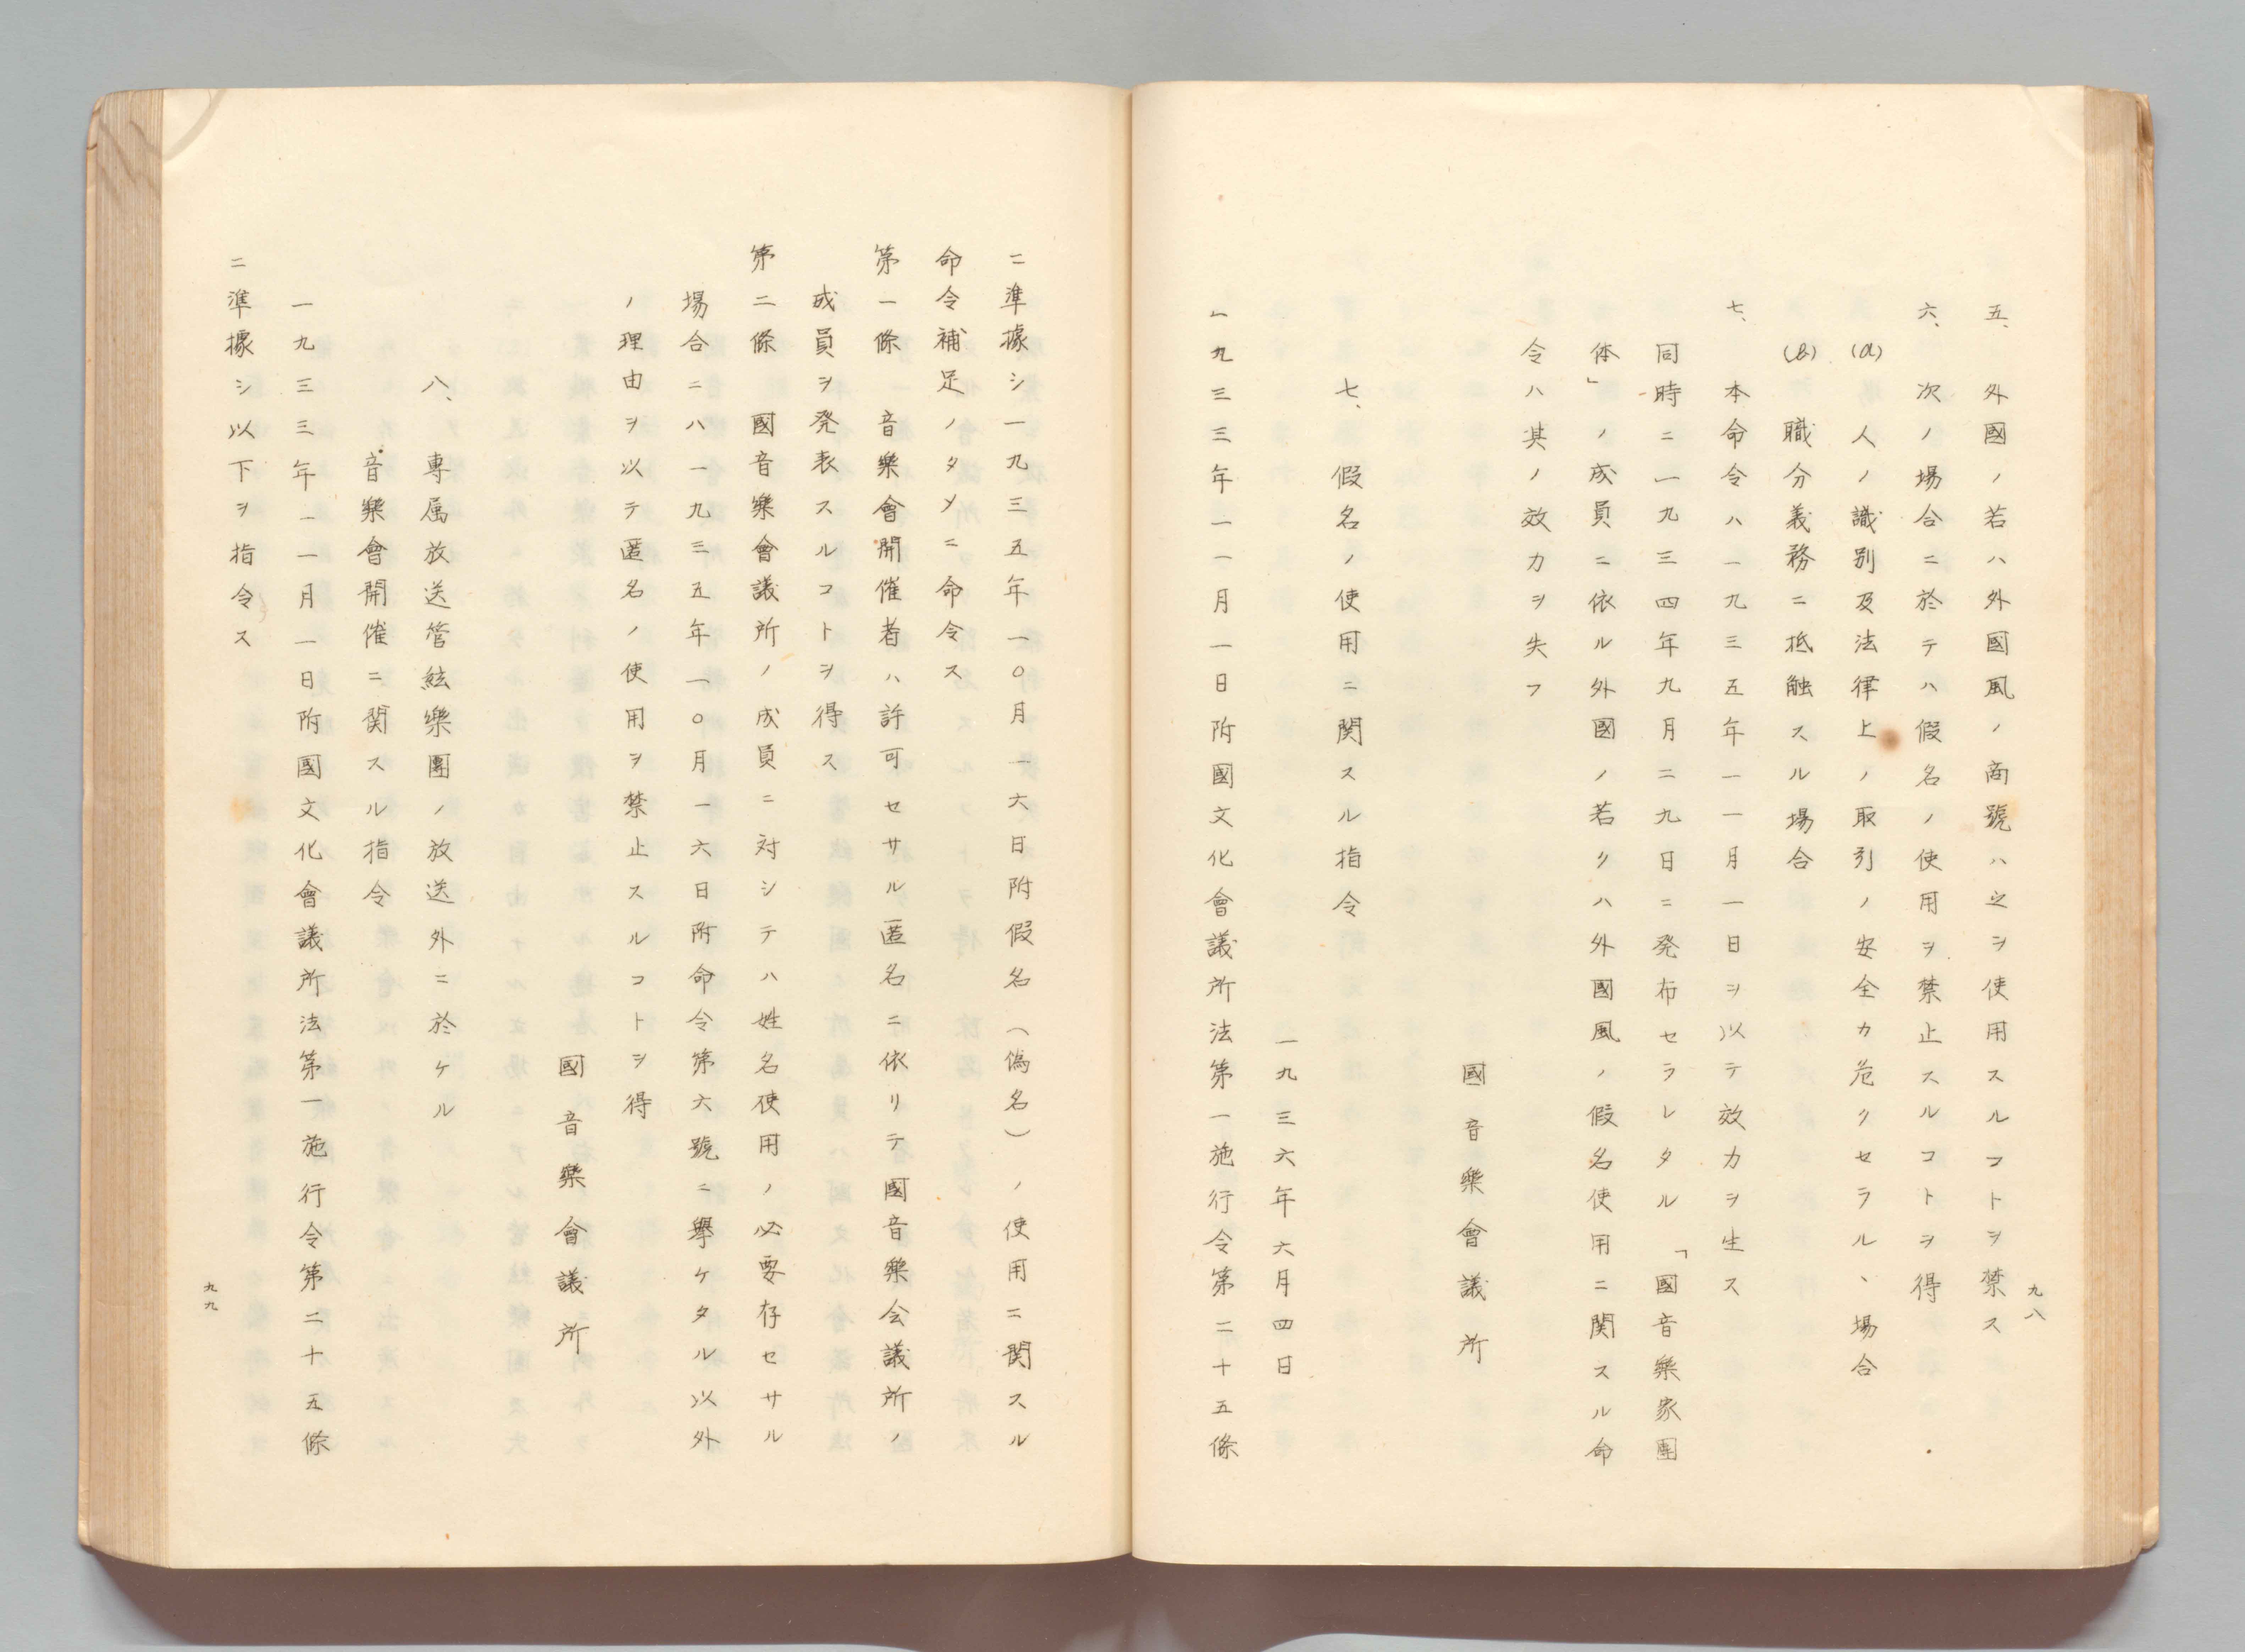 五、外國ノ若ハ外國風ノ商號ハ之ヲ使用スルコトヲ禁ス
六、次ノ場合ニ於テハ假名ノ使用ヲ禁止スルコトヲ得
(a) 人ノ識別及法律上ノ取引ノ安全カ危クセラルヽ場合
(b) 職分義務ニ抵触スル場合
七、本命令ハ一九三五年一一月一日ヲ以テ效力ヲ生ス
同時ニ一九三四年九月二九日ニ発布セラレタル「國音樂家團
体」ノ成員ニ依ル外國ノ若クハ外國風ノ假名使用ニ関スル命
令ハ其ノ效力ヲ失フ
國音樂會議所
七、假名ノ使用ニ関スル指令
一九三六年六月四日
一九三三年一一月一日附國文化會議所法第一施行令第二十五條
九八
ニ準據シ一九三五年一〇月一六日附假名(偽名)ノ使用ニ関スル
命令補足ノタメニ命令ス
第一條 音樂會開催者ハ許可セサル匿名ニ依リテ國音樂会議所ノ
成員ヲ発表スルコトヲ得ス
第二條 國音樂會議所ノ成員ニ対シテハ姓名使用ノ必要存セサル
場合ニハ一九三五年一〇月一六日附命令第六號ニ擧ケタル以外
ノ理由ヲ以テ匿名ノ使用ヲ禁止スルコトヲ得
國音樂會議所
八、專属放送管絃樂團ノ放送外ニ於ケル
音樂會開催ニ関スル指令
一九三三年一一月一日附國文化會議所法第一施行令第二十五條
ニ準據シ以下ヲ指令ス
九九